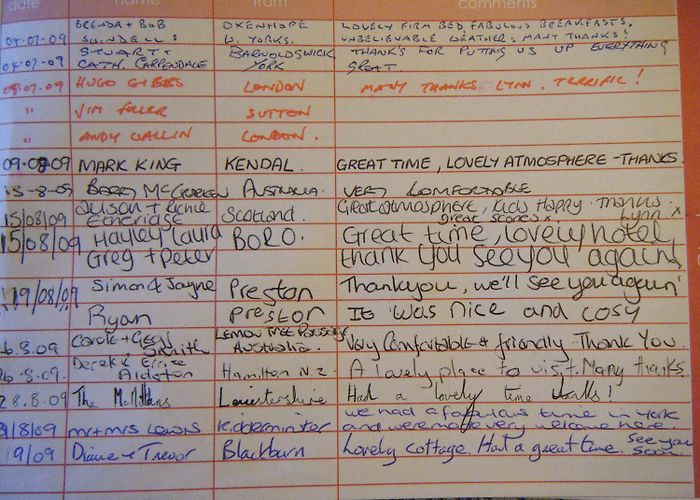 date name from comments
BRENDA + BOB OXENHOPE LOVELY FIRM BED, FABULOUS BREAKFASTS,
04-07-09 SWINDELLS W. YORKS. UNBELIEVABLE WEATHER. MANY THANKS!
STUART + BARNOLDSWICK THANKS FOR PUTTING US UP EVERYTHING
CATH. CARPENDALE YORK GREAT
HUGO GIBBS LONDON MANY THANKS LYNN. TERRIFIC!
" JIM FULLER SUTTON
" ANDY WALLIN LONDON.
09-08-09 MARK KING KENDAL. GREAT TIME, LOVELY ATMOSPHERE - THANKS.
15-8-09 AUSTRALIA. VERY COMFORTABLE
Scotland. Great atmosphere, Kids Happy. Thanks
15/08/09 Etheridge great scones x, Lynn x
15/08/09 Hayley, Laura BORO. Great time, lovely hotel
Greg + Peter thank you see you again
19/08/09 Simon & Jayne Preston Thankyou, we'll see you again'
Ryan Preston It was nice and cosy
6.8.09 Carole + Smith AUSTRALIA. Very Comfortable & friendly Thank You.
26.8.09. Derek & Hamilton N.Z. A lovely place to visit. Many thanks.
28.8.09 The Leicestershire Had a lovely time thanks!
we had a fabulous time in York
31/8/09 mr + mrs LEWIS Kidderminster and were made very welcome here.
/9/09 Diane + Trevor Blackburn Lovely cottage. Had a great time. See you
soon.